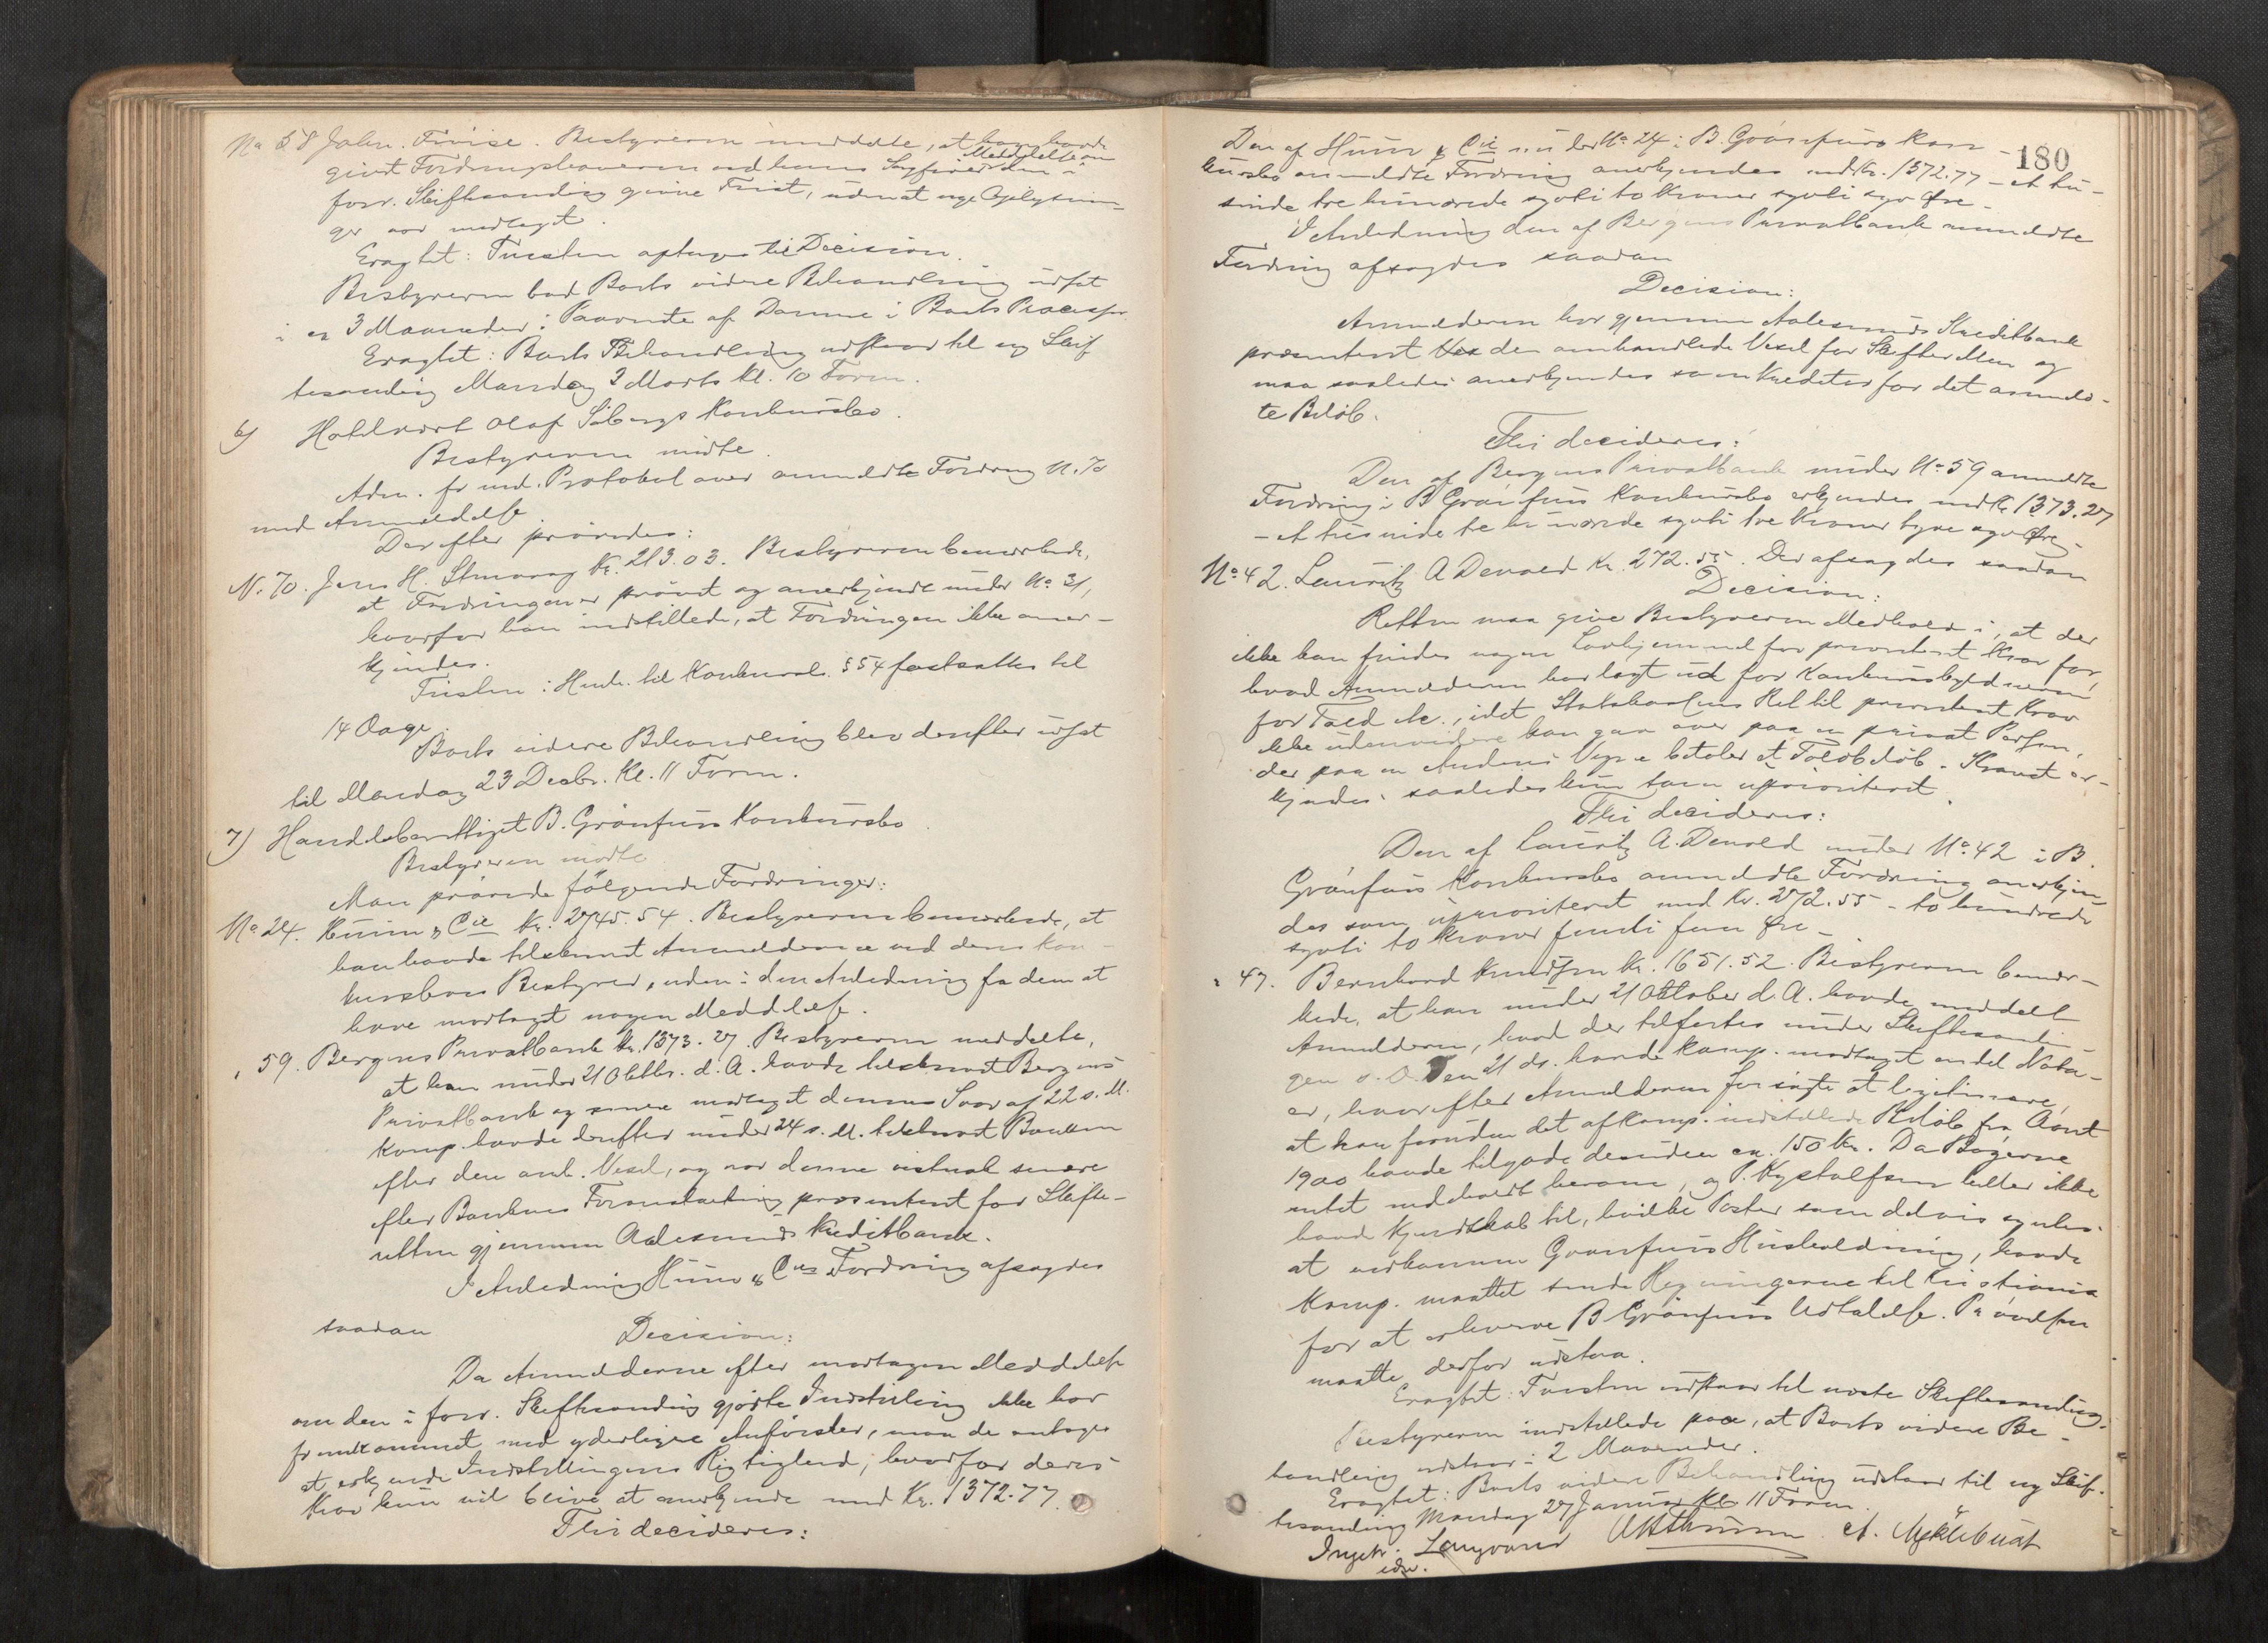 No 58 John. Bestyreren meddelte, at han havde
givet Fordringshaveren ved hans Sagfører Meddelelse om den i
forr. Skiftesamling givne Frist, uden at nye Oplysnin-
ger var modtaget.
Eragtet: Tvisten optages til Decision.
Bestyreren bad Boets videre Behandling udsat
i ca 3 Maaneder i Paavente af Domme i Boets Processer.
Eragtet: Boets Behandling udstaar til ny Skif
tesamling Mandag 2 Marts Kl. 10 Form.
6) Hotelvært Olaf Søbergs Konkursbo.
Bestyreren mødte.
Adm. fr. ind. Protokol over anmeldte Fordring N. 70
med Anmeldelse
Derefter prøvedes:
N. 70. Jens H. Kr. 213.03. Bestyreren bemærkede,
at Fordringen er prøvet og anerkjendt under No 31,
hvorfor han indstillede, at Fordringen ikke aner-
kjendes.
Fristen i Henh. til Konkursl. § 54 fastsattes til
14 Dage.
Boets videre Behandling blev derefter udsat
til Mandag 23 Decbr. Kl. 11 Form.
7) Handelsberettiget B. Grönfurs Konkursbo.
Bestyreren mødte
Man prøvede følgende Fordringer:
No 24. Huun & Cie Kr. 2745.54. Bestyreren bemærkede, at
han havde tilskrevet Anmelderne ved deres Kon-
kursbos Bestyrer, uden i den Anledning fra dem at
have modtaget nogen Meddelelse.
" 59. Bergens Privatbank Kr. 1373.27. Bestyreren meddelte,
at han under 21 Oktbr. d. A. havde tilskrevet Bergens
Privatbank og senere modtaget dennes Svar af 22 s. M.
Komp. havde derefter under 24 s. M. tilskrevet Banken
efter den omh. Vexel, og var denne senere
efter Bankens Foranstaltning præsenteret for Skifte-
retten gjennem Aalesunds Kreditbank.
I Anledning Huun & Cies Fordring afsagdes
saadan
Decision:
Da Anmelderne efter modtagen Meddelelse
om den i forr. Skiftesamling gjorte Indstilling ikke har
fremkommet med yderligere Anførsler, maa de antages
at erkjende Indstillingens Rigtighed, hvorfor deres
Krav kun vil blive at anerkjende med Kr. 1372.77.
Thi decideres:
180
Den af Huun & Cie under No 24 i B. Grönfurs Kon-
kursbo anmeldte Fordring anerkjendes med Kr. 1372.77 - et tu-
sinde tre hundrede sytti to Kroner sytti syv Øre -
I Anledning den af Bergens Privatbank anmeldte
Fordring afsagdes saadan
Decision:
Anmelderen har gjennem Aalesunds Kreditbank
præsenteret den omhandlede Vexel for Skifteretten og
maa saaledes anerkjendes som Kreditor for det anmeld-
te Beløb.
Thi decideres:
Den af Bergens Privatbank under No 59 anmeldte
Fordring i B Grönfurs Konkursbo erkjendes med Kr. 1373.27
- et tusinde tre hundrede sytti tre Kroner tyve syv Øre -
No 42. Lauritz A Devold Kr. 272.55. Der afsagdes saadan
Decision:
Retten maa give Bestyreren Medhold i, at der
ikke kan findes nogen Lovhjemmel for prioriteret Krav for,
hvad Anmelderen har lagt ud for Konkursskyldneren
for Told etc., idet Statskassens Ret til prioriteret Krav
ikke udenvidere kan gaa over paa en privat Person,
der paa en Andens Vegne betaler et Toldbeløb. Kravet er-
kjendes saaledes kun som uprioriteret.
Thi decideres:
Den af Lauritz A. Devold under No. 42 i B.
Grönfurs Konkursbo anmeldte Fordring anerkjen-
des som uprioriteret med Kr. 272.55 - to hundrede
sytti to Kroner femti fem Øre -
" 47. Bernhard Knudsen Kr. 1651.52. Bestyreren bemær-
kede, at han under 21 Oktober d. A. havde meddelt
Anmelderen, hvad der tilførtes under Skiftesamlin-
gen s. D. Den 21 ds. havde Komp. modtaget en del Nota-
er, hvorefter Anmelderen for at legitimere,
at han foruden det af Komp. indstillede Beløb fra Aaret
1900 havde tilgode desuden ca. 150 Kr. Da Bøgerne
intet indeholdt herom, og P. heller ikke
havde Kjendskab til, hvilke Poster som delvis synes
at vedkomme Grönfurs Husholdning, havde
Komp. maattet sende Regningerne til Kristiania
for at erhverve B Grönfurs Udtalelse. Prøvelsen
maatte derfor udstaa.
Eragtet: Tvisten udstaar til næste Skiftesamling.
Bestyreren indstillede paa, at Boets videre Be-
handling udstaar i 2 Maaneder.
Eragtet: Boets videre Behandling udstaar til ny Skif-
tesamling Mandag 27 Januar Kl. 11 Form.
Langvand
edsv.